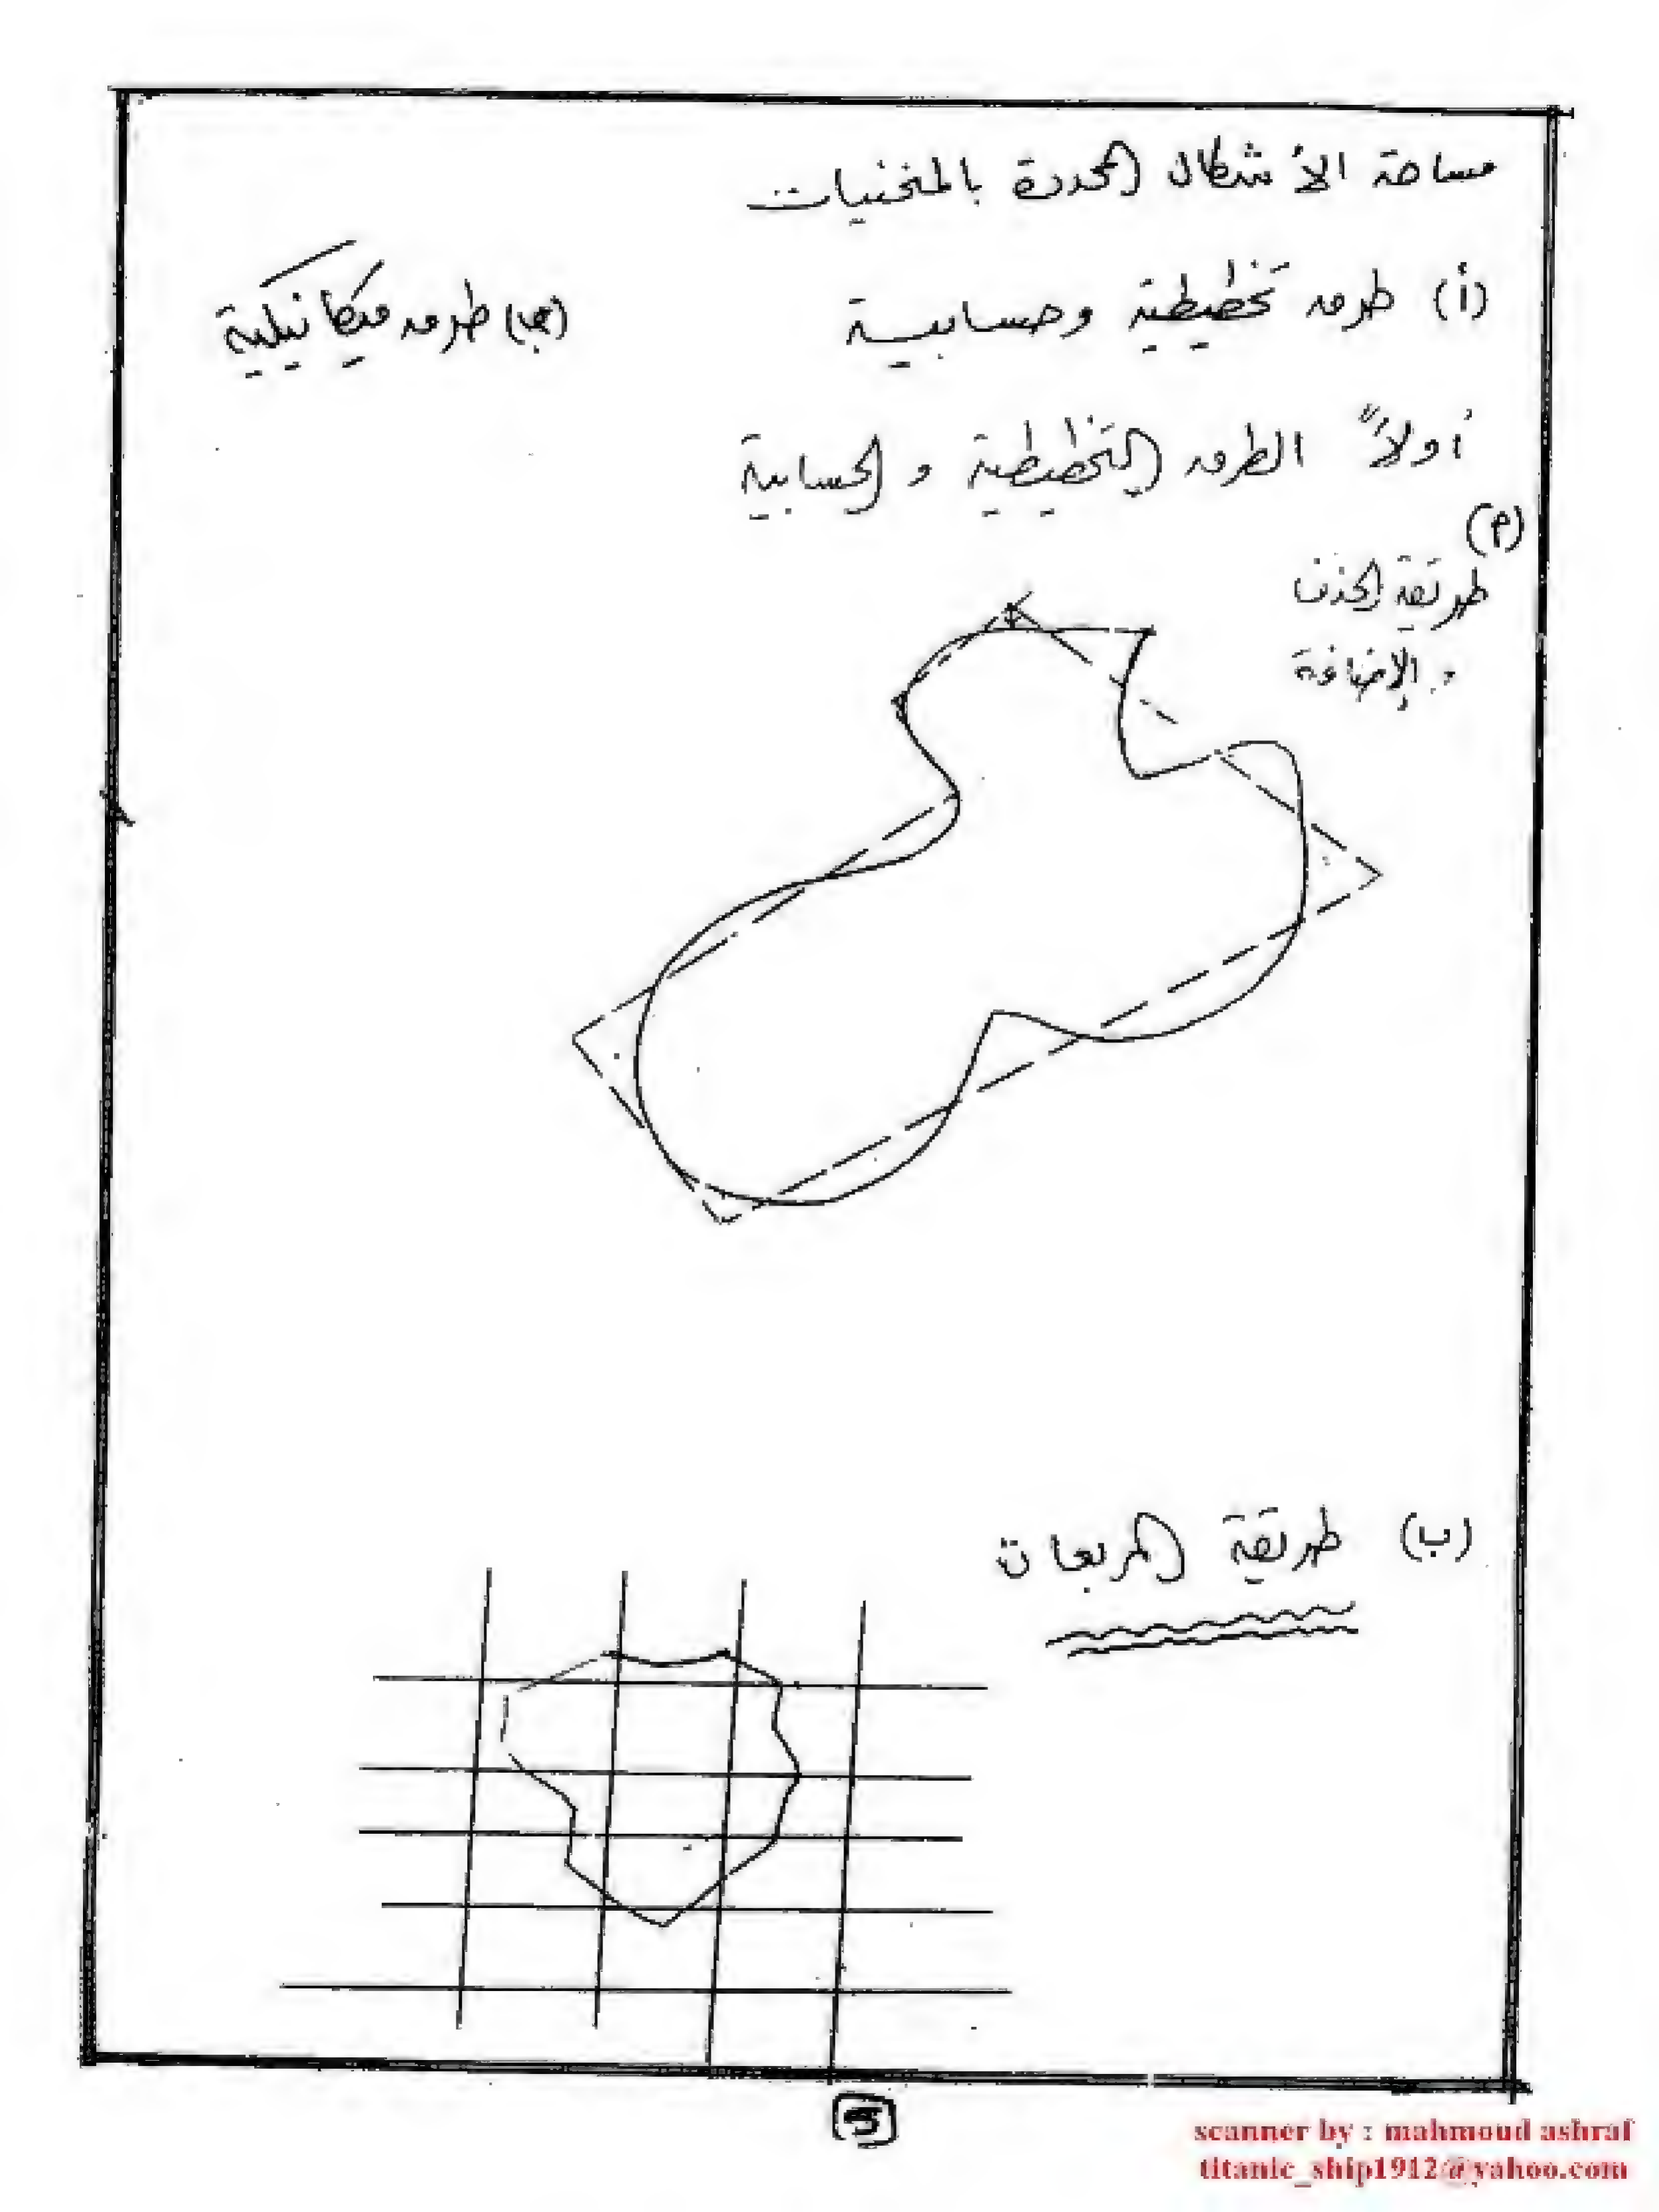 مساحة الأشكال المحددة بالمنحنيات
(أ) طرق تخطيطية وحسابية
(ب) طرق ميكانيكية
أولاً الطرق التخطيطية والحسابية
(أ)
طريقة الحذف
والإضافة
(ب) طريقة المربعات
3
scanner by : mahmoud ashraf
titanic_ship1912@yahoo.com